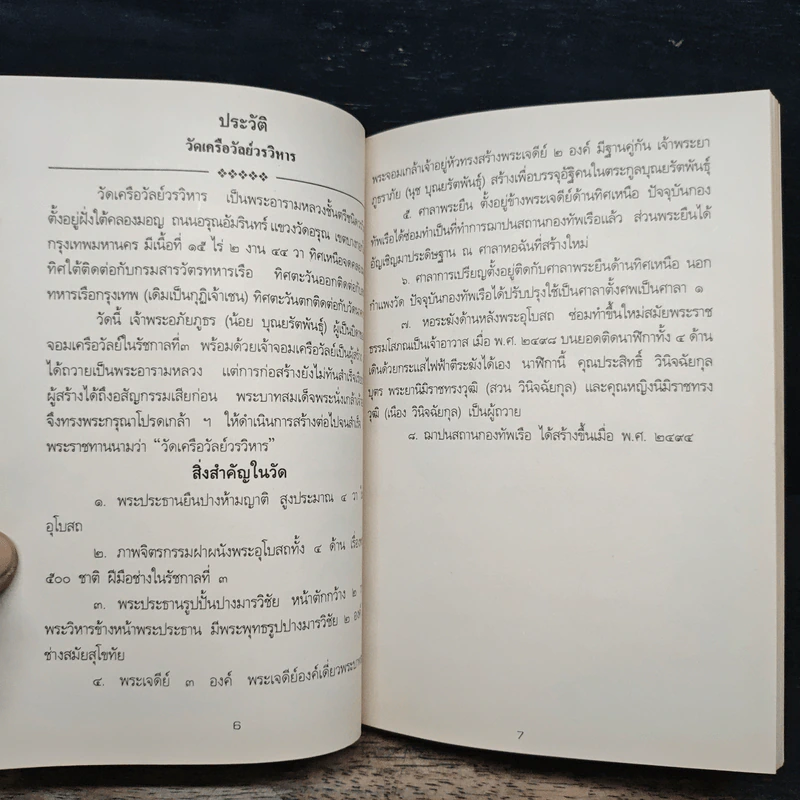 ประวัติ
วัดเครือวัลย์วรวิหาร
วัดเครือวัลย์วรวิหาร เป็นพระอารามหลวงชั้นตรีชนิด
ตั้งอยู่ฝั่งใต้คลองมอญ ถนนอรุณอัมรินทร์ แขวงวัดอรุณ เขต
กรุงเทพมหานคร มีเนื้อที่ ๑๕ ไร่ ๒ งาน ๔๔ วา ทิศเหนือจดคลอง
ทิศใต้ติดต่อกับกรมสารวัตรทหารเรือ ทิศตะวันออกติดต่อกับ
ทหารเรือกรุงเทพ (เดิมเป็นกุฎิเจ้าเซน) ทิศตะวันตกติดต่อกับวัด
วัดนี้ เจ้าพระอภัยภูธร (น้อย บุณยรัตพันธุ์) ผู้เป็นบิดา
จอมเครือวัลย์ในรัชกาลที่๓ พร้อมด้วยเจ้าจอมเครือวัลย์เป็นผู้สร้าง
ได้ถวายเป็นพระอารามหลวง แต่การก่อสร้างยังไม่ทันสำเร็จ
ผู้สร้างได้ถึงอสัญกรรมเสียก่อน พระบาทสมเด็จพระนั่งเกล้า
จึงทรงพระกรุณาโปรดเกล้า ฯ ให้ดำเนินการสร้างต่อไปจนสำเร็จ
พระราชทานนามว่า “วัดเครือวัลย์วรวิหาร”
สิ่งสำคัญในวัด
๑. พระประธานยืนปางห้ามญาติ สูงประมาณ ๔ วา
อุโบสถ
๒. ภาพจิตรกรรมฝาผนังพระอุโบสถทั้ง ๔ ด้าน
๕๐๐ ชาติ ฝีมือช่างในรัชกาลที่ ๓
๓. พระประธานรูปปั้นปางมารวิชัย หน้าตักกว้าง ๒
พระวิหารข้างหน้าพระประธาน มีพระพุทธรูปปางมารวิชัย ๒
ช่างสมัยสุโขทัย
๔. พระเจดีย์ ๓ องค์ พระเจดีย์องค์เดี่ยว
6
พระจอมเกล้าเจ้าอยู่หัวทรงสร้างพระเจดีย์ ๒ องค์ มีฐานคู่กัน เจ้าพระยา
ภูธราภัย (นุช บุณยรัตพันธุ์) สร้างเพื่อบรรจุอัฐิคนในตระกูลบุณยรัตพันธุ์
๕. ศาลาพระยืน ตั้งอยู่ข้างพระเจดีย์ด้านทิศเหนือ ปัจจุบันกอง
ทัพเรือได้ซ่อมทำเป็นที่ทำการฌาปนสถานกองทัพเรือแล้ว ส่วนพระยืนได้
อัญเชิญมาประดิษฐาน ณ ศาลาหอฉันที่สร้างใหม่
๖. ศาลาการเปรียญตั้งอยู่ติดกับศาลาพระยืนด้านทิศเหนือ นอก
กำแพงวัด ปัจจุบันกองทัพเรือได้ปรับปรุงใช้เป็นศาลาตั้งศพเป็นศาลา ๑
๗. หอระฆังด้านหลังพระอุโบสถ ซ่อมทำขึ้นใหม่สมัยพระราช
ธรรมโสภณเป็นเจ้าอาวาส เมื่อ พ.ศ. ๒๔๙๘ บนยอดติดนาฬิกาทั้ง ๔ ด้าน
เดินด้วยกระแสไฟฟ้าตีระฆังได้เอง นาฬิกานี้ คุณประสิทธิ์ วินิจฉัยกุล
บุตร พระยานิมิราชทรงวุฒิ (สวน วินิจฉัยกุล) และคุณหญิงนิมิราชทรง
วุฒิ (เนื่อง วินิจฉัยกุล) เป็นผู้ถวาย
๘. ฌาปนสถานกองทัพเรือ ได้สร้างขึ้นเมื่อ พ.ศ. ๒๔๙๔
7